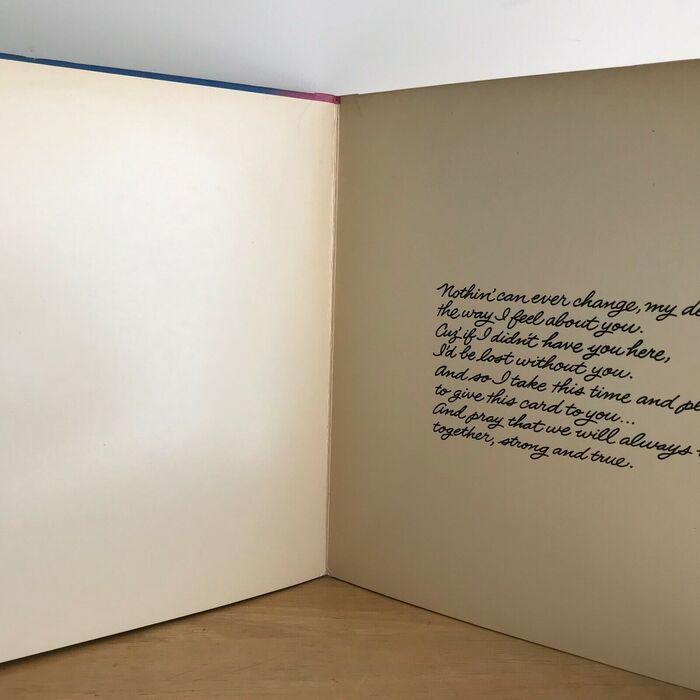 Nothin' can ever change, my
the way I feel about you.
Cuz' if I didn't have you here,
I'd be lost without you.
And so I take this time and
to give this card to you...
And pray that we will always
together, strong and true.